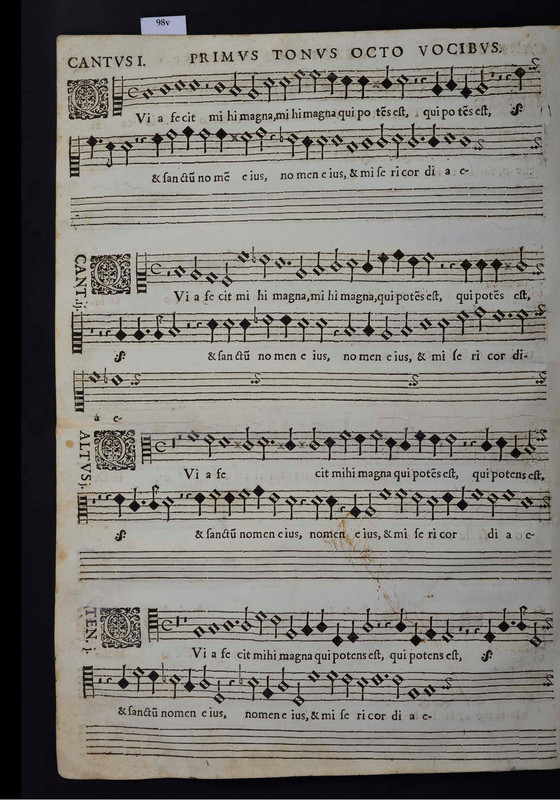 98v
CANTVS I. PRIMVS TONVS OCTO VOCIBVS.
QVi a fecit mi hi magna,mi hi magna qui po tẽs eſt, qui po tẽs eſt, ij.
& ſan ctũ no mẽ e ius, no men e ius, & mi ſe ri cor di a e-
CANT. ij.
QVi a fe cit mi hi magna,mi hi magna,qui potẽs eſt, qui potẽs eſt,
ij. & ſan ctũ no men e ius, no men e ius, & mi ſe ri cor di-
a e-
ALTVS i.
QVi a fe cit mihi magna qui potẽs eſt, qui potens eſt,
ij. & ſan ctũ nomen e ius, nomen e ius, & mi ſe ri cor di a e-
TEN. i.
QVi a fe cit mihi magna qui potens eſt, qui potens eſt, ij.
& ſan ctũ nomen e ius, nomen e ius, & mi ſe ri cor di a e-